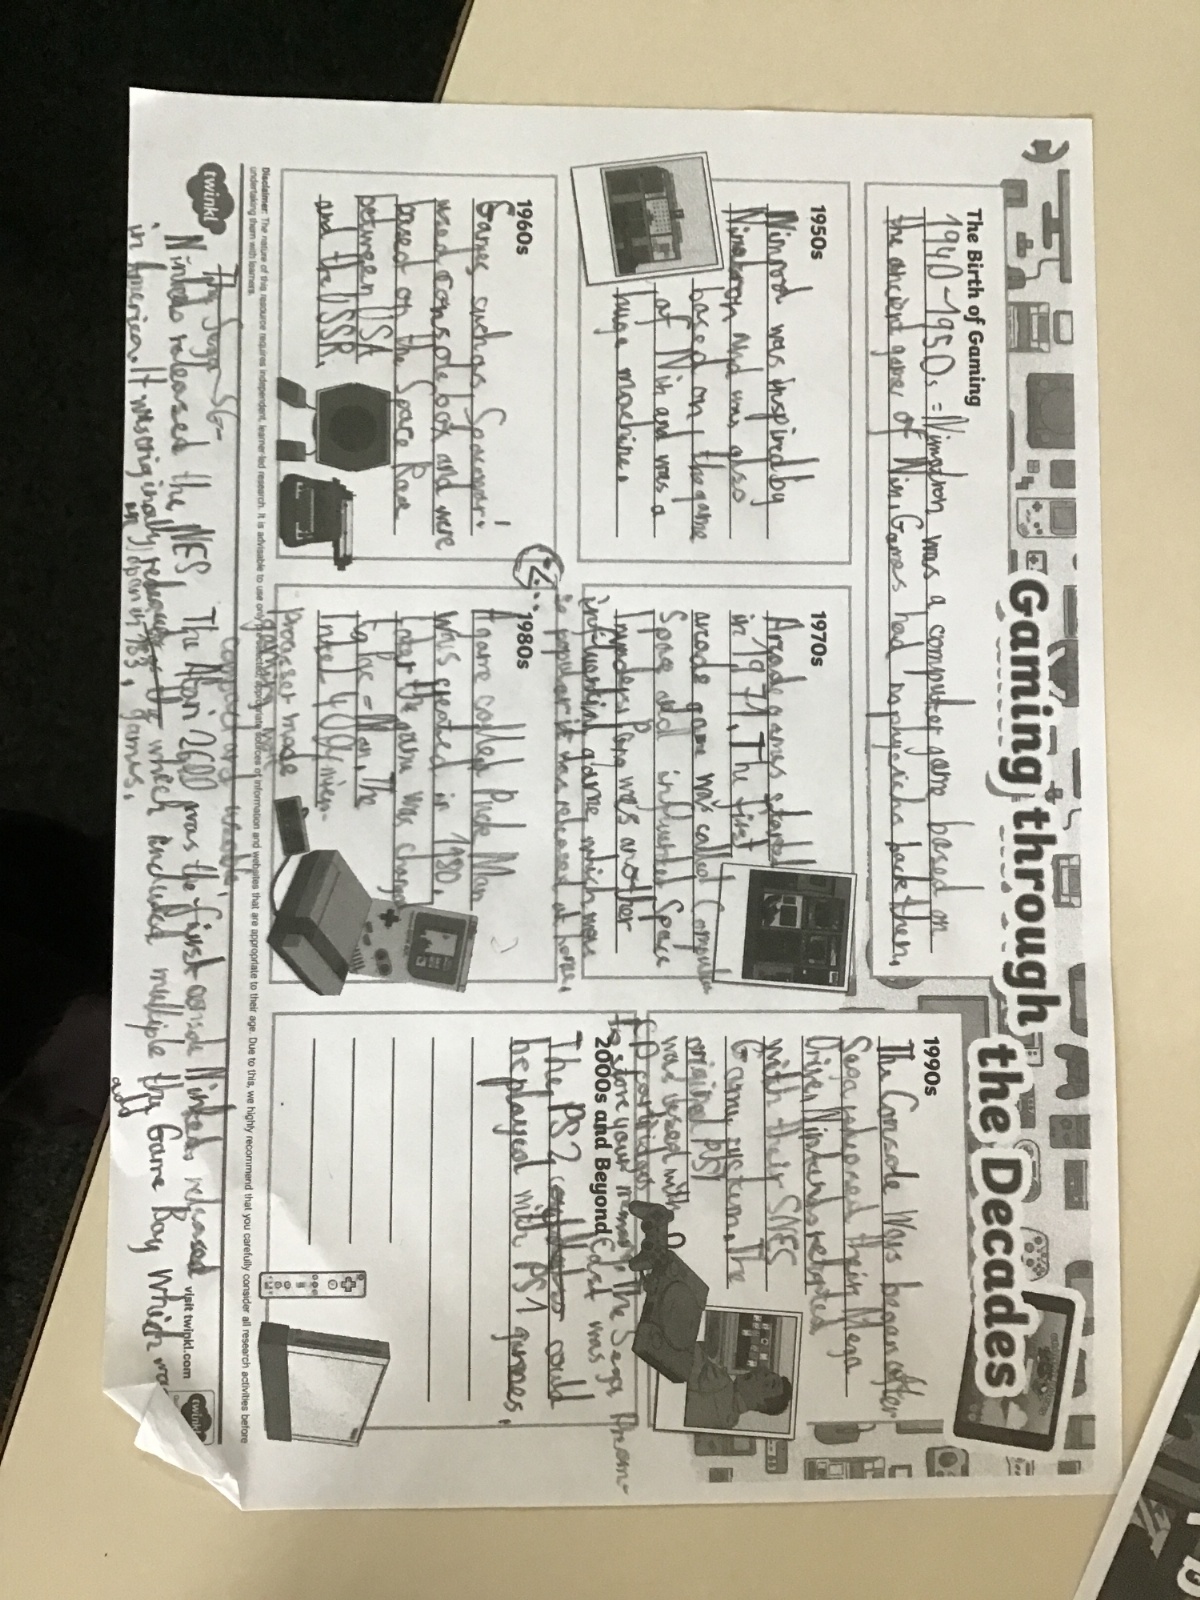 Gaming through the Decades
The Birth of Gaming
1940-1950s = Nimatron was a computer game based on
the ancient game of Nim. Games had no physichs back then.
1950s
Nimrod was inspired by
Nimatron and was also
based on the game
of Nim and was a
huge machine.
1960s
Games such as Spacewar!
used console box and were
based on the Space Race
between USA
and the USSR.
1970s
Arcade games started
in 1971. The first
arcade game was called Computer
Space and influented Space
Invaders Pong was another
influential game which was
so popular it was released at home.
1980s
A game called Puck Man
was created in 1980,
later the game was changed
to Pac-Man. The
Intel
processer made
gaming
computers
The Sega SG-
Nintendo released the NES. The Atari 2600 was the first console Nintendo released
in America. It was originally released which included multiple the Game Boy which was
in Japan in '83. games.
add
1990s
The Console Wars began after
Sega released their Mega
Drive. Nintendo
with their SNES
Gaming system. The
original PS1
was used with
CD
to store your memory. The Sega Dream-
2000s and Beyond
Cast was
The PS2 could
be played with PS1 games.
twinkl
Disclaimer: The nature of this resource requires independent, learner-led research. It is advisable to use only appropriate sources of information and websites that are appropriate to their age. Due to this, we highly recommend that you carefully consider all research activities before
undertaking them with learners.
visit twinkl.com
twinkl